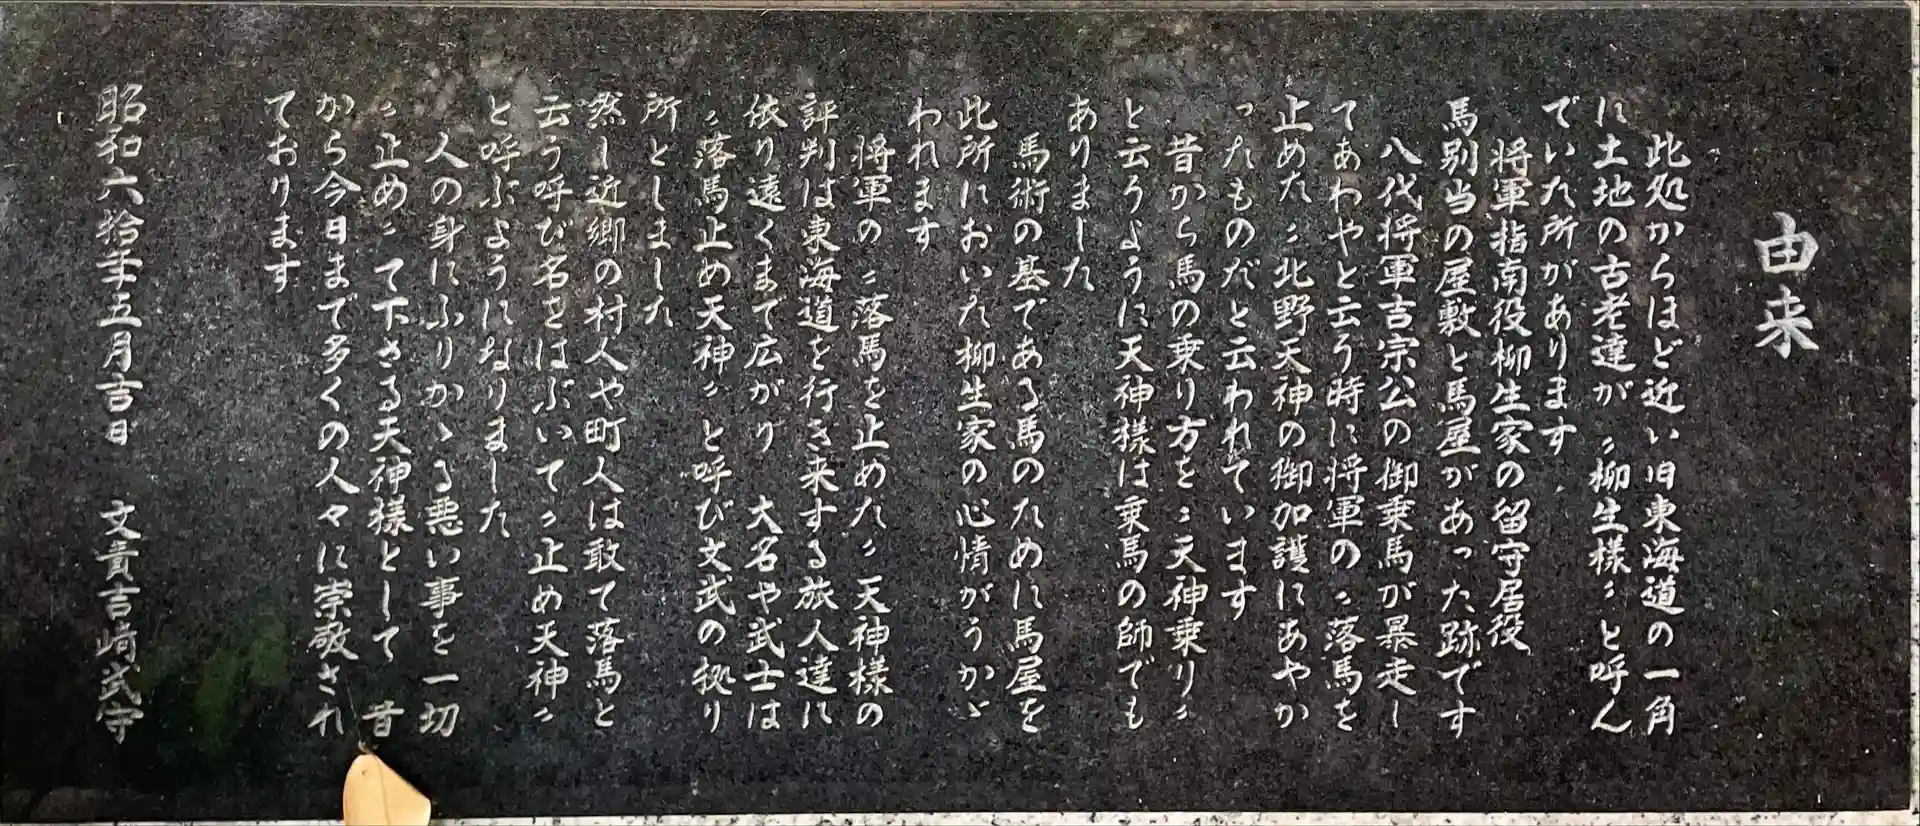 由来
此処からほど近い旧東海道の一角
に土地の古老達が〝柳生様〟と呼ん
でいた所があります
将軍指南役柳生家の留守居役
馬別当の屋敷と馬屋があった跡です
八代将軍吉宗公の御乗馬が暴走し
てあわやと云う時に将軍の〝落馬を
止めた〟北野天神の御加護にあやか
ったものだと云われています
昔から馬の乗り方を〝天神乗り〟
と云うように天神様は乗馬の師でも
ありました
馬術の基である馬のために馬屋を
此所においた柳生家の心情がうかゞ
われます
将軍の〝落馬を止めた〟天神様の
評判は東海道を行き来する旅人達に
依り遠くまで広がり 大名や武士は
〝落馬止め天神〟と呼び文武の拠り
所としました
然し近郷の村人や町人は敢て落馬と
云う呼び名をはぶいて〝止め天神〟
と呼ぶようになりました
人の身にふりかゝる悪い事を一切
〝止め〟て下さる天神様として 昔
から今日まで多くの人々に崇敬され
ております
昭和六拾年五月吉日 文責吉崎武守